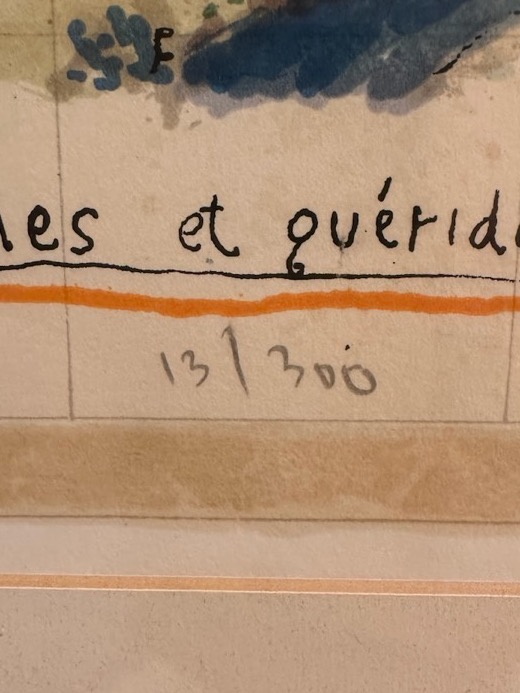 les et guérid
13/300